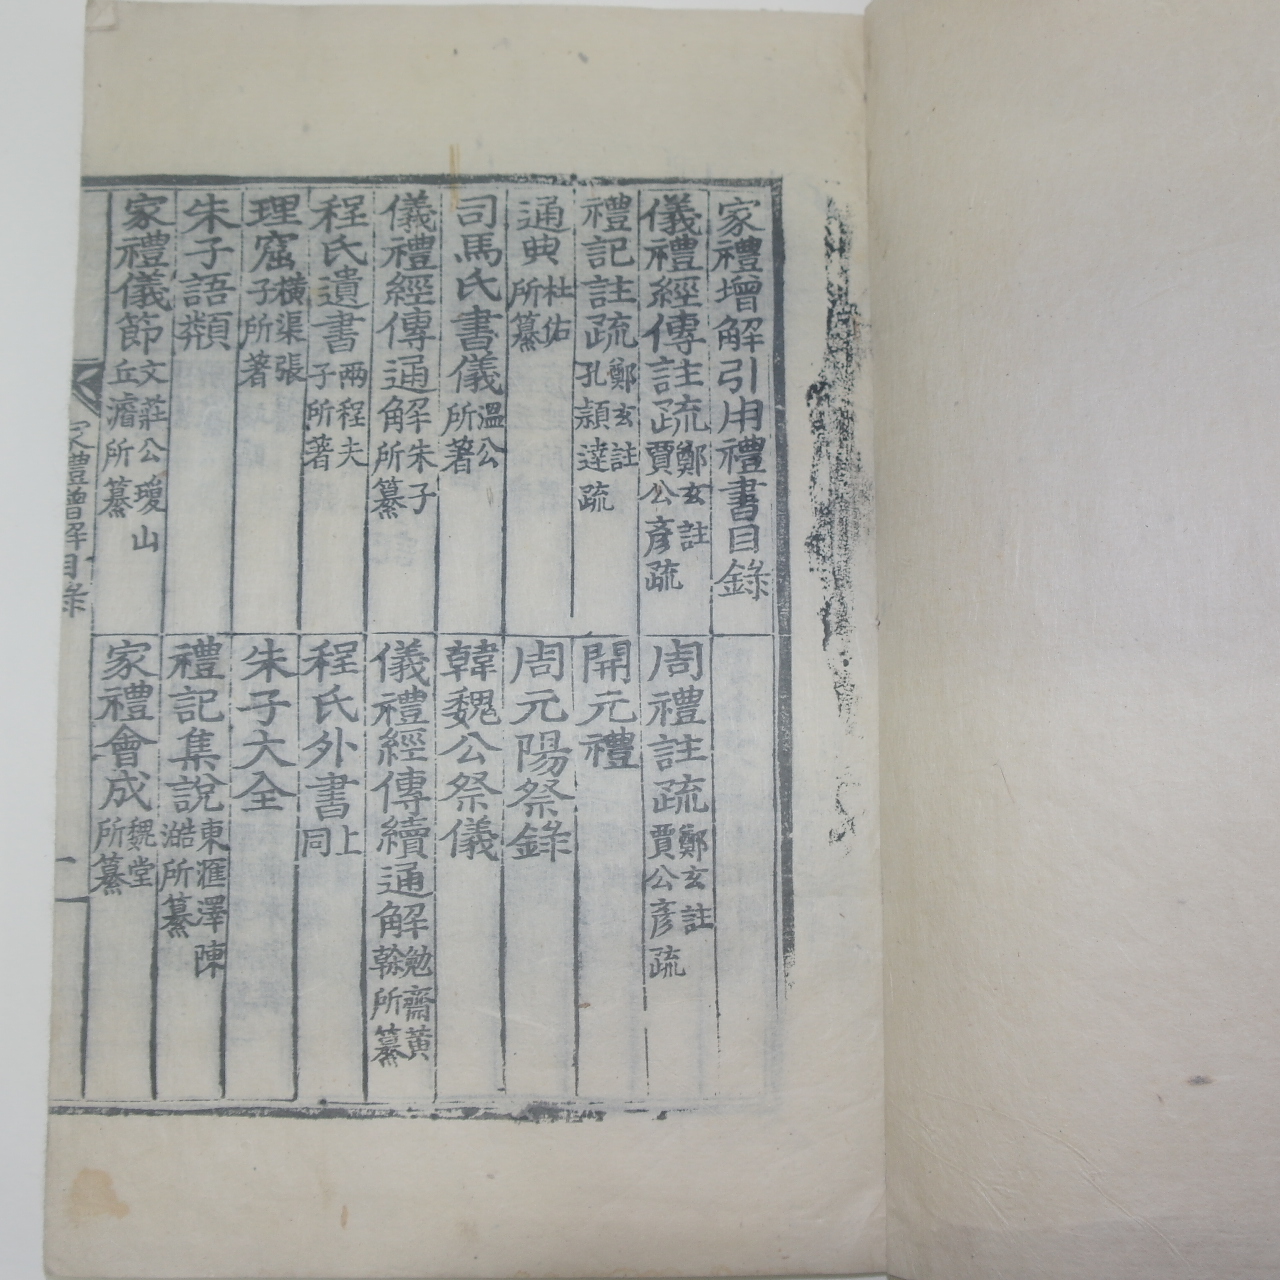 家禮增解引用禮書目錄
儀禮經傳註疏 鄭玄註 賈公彥疏
周禮註疏 鄭玄註 賈公彥疏
禮記註疏 鄭玄註 孔穎達疏
開元禮
通典 杜佑所纂
周元陽祭錄
司馬氏書儀 溫公所著
韓魏公祭儀
儀禮經傳通解 朱子所纂
儀禮經傳續通解 勉齋黃榦所纂
程氏遺書 兩程夫子所著
程氏外書 上同
理窟 橫渠張子所著
朱子大全
朱子語類
禮記集說 東滙澤陳澔所纂
家禮儀節 文莊公瓊山丘濬所纂
家禮會成 魏堂所纂
家禮增解目錄
一